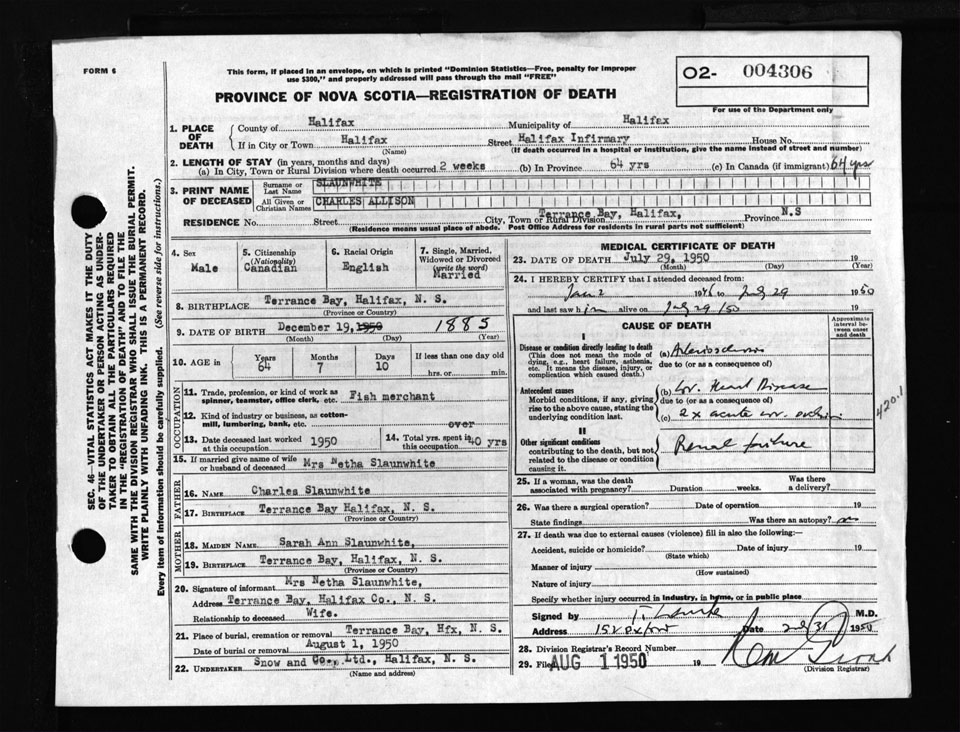 FORM 6
This form, if placed in an envelope, on which is printed "Dominion Statistics—Free, penalty for improper
use $300," and properly addressed will pass through the mail "FREE"
O2- 004306
PROVINCE OF NOVA SCOTIA—REGISTRATION OF DEATH
For use of the Department only
1. PLACE OF DEATH
County of Halifax Municipality of Halifax
If in City or Town Halifax Street Halifax Infirmary House No.
(Name) (If death occurred in a hospital or institution, give the name instead of street and number)
2. LENGTH OF STAY (in years, months and days)
(a) In City, Town or Rural Division where death occurred 2 weeks (b) In Province 64 yrs (c) In Canada (if immigrant) 64 yrs
3. PRINT NAME OF DECEASED
Surname or Last Name SLAUNWHITE
All Given or Christian Names CHARLES ALLISON
RESIDENCE No. Street City, Town or Rural Division Terrance Bay, Halifax, Province N.S
(Residence means usual place of abode. Post Office Address for residents in rural parts not sufficient)
4. Sex Male
5. Citizenship (Nationality) Canadian
6. Racial Origin English
7. Single, Married, Widowed or Divorced (write the word) Married
8. BIRTHPLACE Terrance Bay, Halifax, N. S.
(Province or County)
9. DATE OF BIRTH December 19, 1950 1885
(Month) (Day) (Year)
10. AGE in Years 64 Months 7 Days 10 If less than one day old hrs. or min.
OCCUPATION
11. Trade, profession, or kind of work as spinner, teamster, office clerk, etc. Fish merchant
12. Kind of industry or business, as cotton-mill, lumbering, bank, etc. over
13. Date deceased last worked at this occupation 1950
14. Total yrs. spent in this occupation 40 yrs
15. If married give name of wife or husband of deceased Mrs Netha Slaunwhite
FATHER
16. NAME Charles Slaunwhite
17. BIRTHPLACE Terrance Bay Halifax, N. S.
(Province or Country)
MOTHER
18. MAIDEN NAME Sarah Ann Slaunwhite,
19. BIRTHPLACE Terrance Bay, Halifax, N. S.
(Province or Country)
20. Signature of informant Mrs Netha Slaunwhite,
Address Terrance Bay, Halifax Co., N. S.
Relationship to deceased Wife.
21. Place of burial, cremation or removal Terrance Bay, Hfx, N. S.
Date of burial or removal August 1, 1950
22. UNDERTAKER Snow and Co., Ltd., Halifax, N. S.
(Name and address)
MEDICAL CERTIFICATE OF DEATH
23. DATE OF DEATH July 29, 1950 19
(Month) (Day) (Year)
24. I HEREBY CERTIFY that I attended deceased from
Jan 2 1946 to July 29 1950
and last saw him alive on July 29/50 19
CAUSE OF DEATH
Approximate interval between onset and death
I
Disease or condition directly leading to death
(This does not mean the mode of dying, e.g., heart failure, asthenia, etc. It means the disease, injury, or complication which caused death.)
(a)
due to (or as a consequence of)
Antecedent causes
Morbid conditions, if any, giving rise to the above cause, stating the underlying condition last.
(b) Heart Disease
due to (or as a consequence of)
(c) acute
420.1
II
Other significant conditions
contributing to the death, but not related to the disease or condition causing it.
Renal failure
25. If a woman, was the death associated with pregnancy? Duration weeks. Was there a delivery?
26. Was there a surgical operation? Date of operation 19
State findings Was there an autopsy? no
27. If death was due to external causes (violence) fill in also the following:—
Accident, suicide or homicide? Date of injury 19
(State which)
Manner of injury
(How sustained)
Nature of injury
Specify whether injury occurred in industry, in home, or in public place
Signed by M.D.
Address Date 1950
28. Division Registrar's Record Number
29. Filed AUG 1 1950 19
(Division Registrar)
SEC. 46—VITAL STATISTICS ACT MAKES IT THE DUTY
OF THE UNDERTAKER OR PERSON ACTING AS UNDER-
TAKER TO OBTAIN ALL THE PARTICULARS REQUIRED
IN THE "REGISTRATION OF DEATH" AND TO FILE THE
SAME WITH THE DIVISION REGISTRAR WHO SHALL ISSUE THE BURIAL PERMIT.
WRITE PLAINLY WITH UNFADING INK. THIS IS A PERMANENT RECORD.
Every item of information should be carefully supplied. (See reverse side for instructions.)